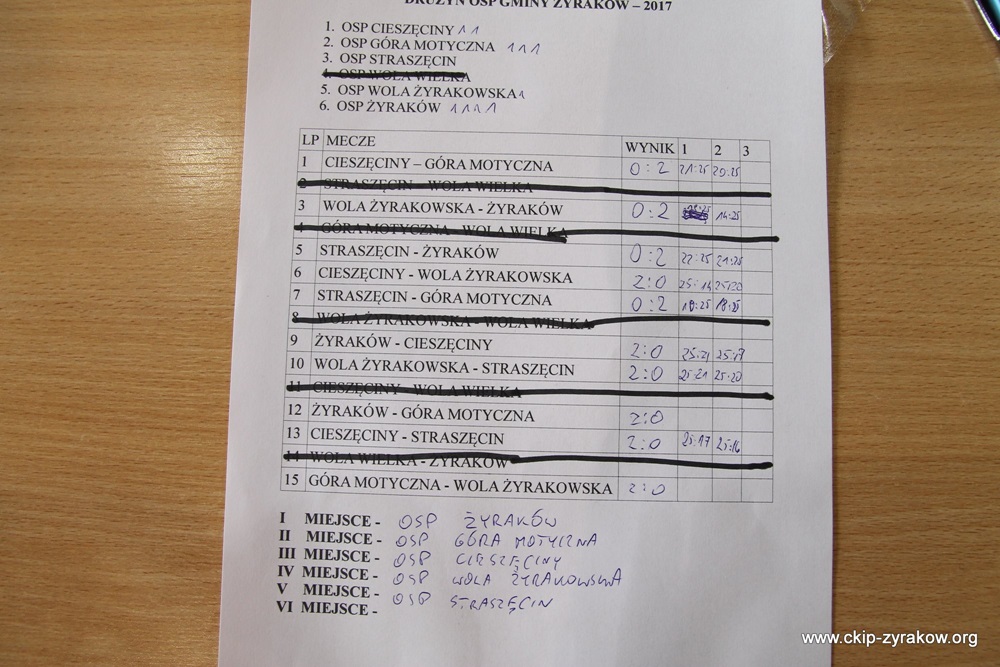 DRUŻYN OSP GMINY ŻYRAKÓW – 2017
1. OSP CIESZĘCINY 1 1
2. OSP GÓRA MOTYCZNA 1 1 1
3. OSP STRASZĘCIN
4. OSP WOLA WIELKA
5. OSP WOLA ŻYRAKOWSKA 1
6. OSP ŻYRAKÓW 1 1 1 1
LP MECZE WYNIK 1 2 3
1 CIESZĘCINY – GÓRA MOTYCZNA 0:2 21:25 20:25
2 STRASZĘCIN - WOLA WIELKA
3 WOLA ŻYRAKOWSKA - ŻYRAKÓW 0:2 14:25
4 GÓRA MOTYCZNA - WOLA WIELKA
5 STRASZĘCIN - ŻYRAKÓW 0:2 22:25 21:25
6 CIESZĘCINY - WOLA ŻYRAKOWSKA 2:0 25:14 25:20
7 STRASZĘCIN - GÓRA MOTYCZNA 0:2 18:25
8 WOLA ŻYRAKOWSKA - WOLA WIELKA
9 ŻYRAKÓW - CIESZĘCINY 2:0 25:21
10 WOLA ŻYRAKOWSKA - STRASZĘCIN 2:0 25:21 25:20
11 CIESZĘCINY - WOLA WIELKA
12 ŻYRAKÓW - GÓRA MOTYCZNA 2:0
13 CIESZĘCINY - STRASZĘCIN 2:0 25:17 25:16
14 WOLA WIELKA - ŻYRAKÓW
15 GÓRA MOTYCZNA - WOLA ŻYRAKOWSKA 2:0
I MIEJSCE - OSP ŻYRAKÓW
II MIEJSCE - OSP GÓRA MOTYCZNA
III MIEJSCE - OSP CIESZĘCINY
IV MIEJSCE - OSP WOLA ŻYRAKOWSKA
V MIEJSCE - OSP STRASZĘCIN
VI MIEJSCE -
www.ckip-zyrakow.org